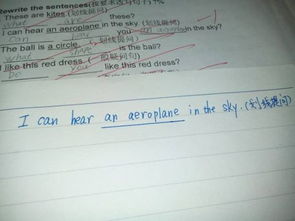 Rewrite the sentences
These are kites.(划线提问)
What are these?
I can hear an aeroplane in the sky.(划线提问)
Can you in the sky?
The ball is a circle.(划线提问)
What shape is the ball?
I like this red dress.(一般疑问句)
Do you like this red dress?
I can hear an aeroplane in the sky.(划线提问)